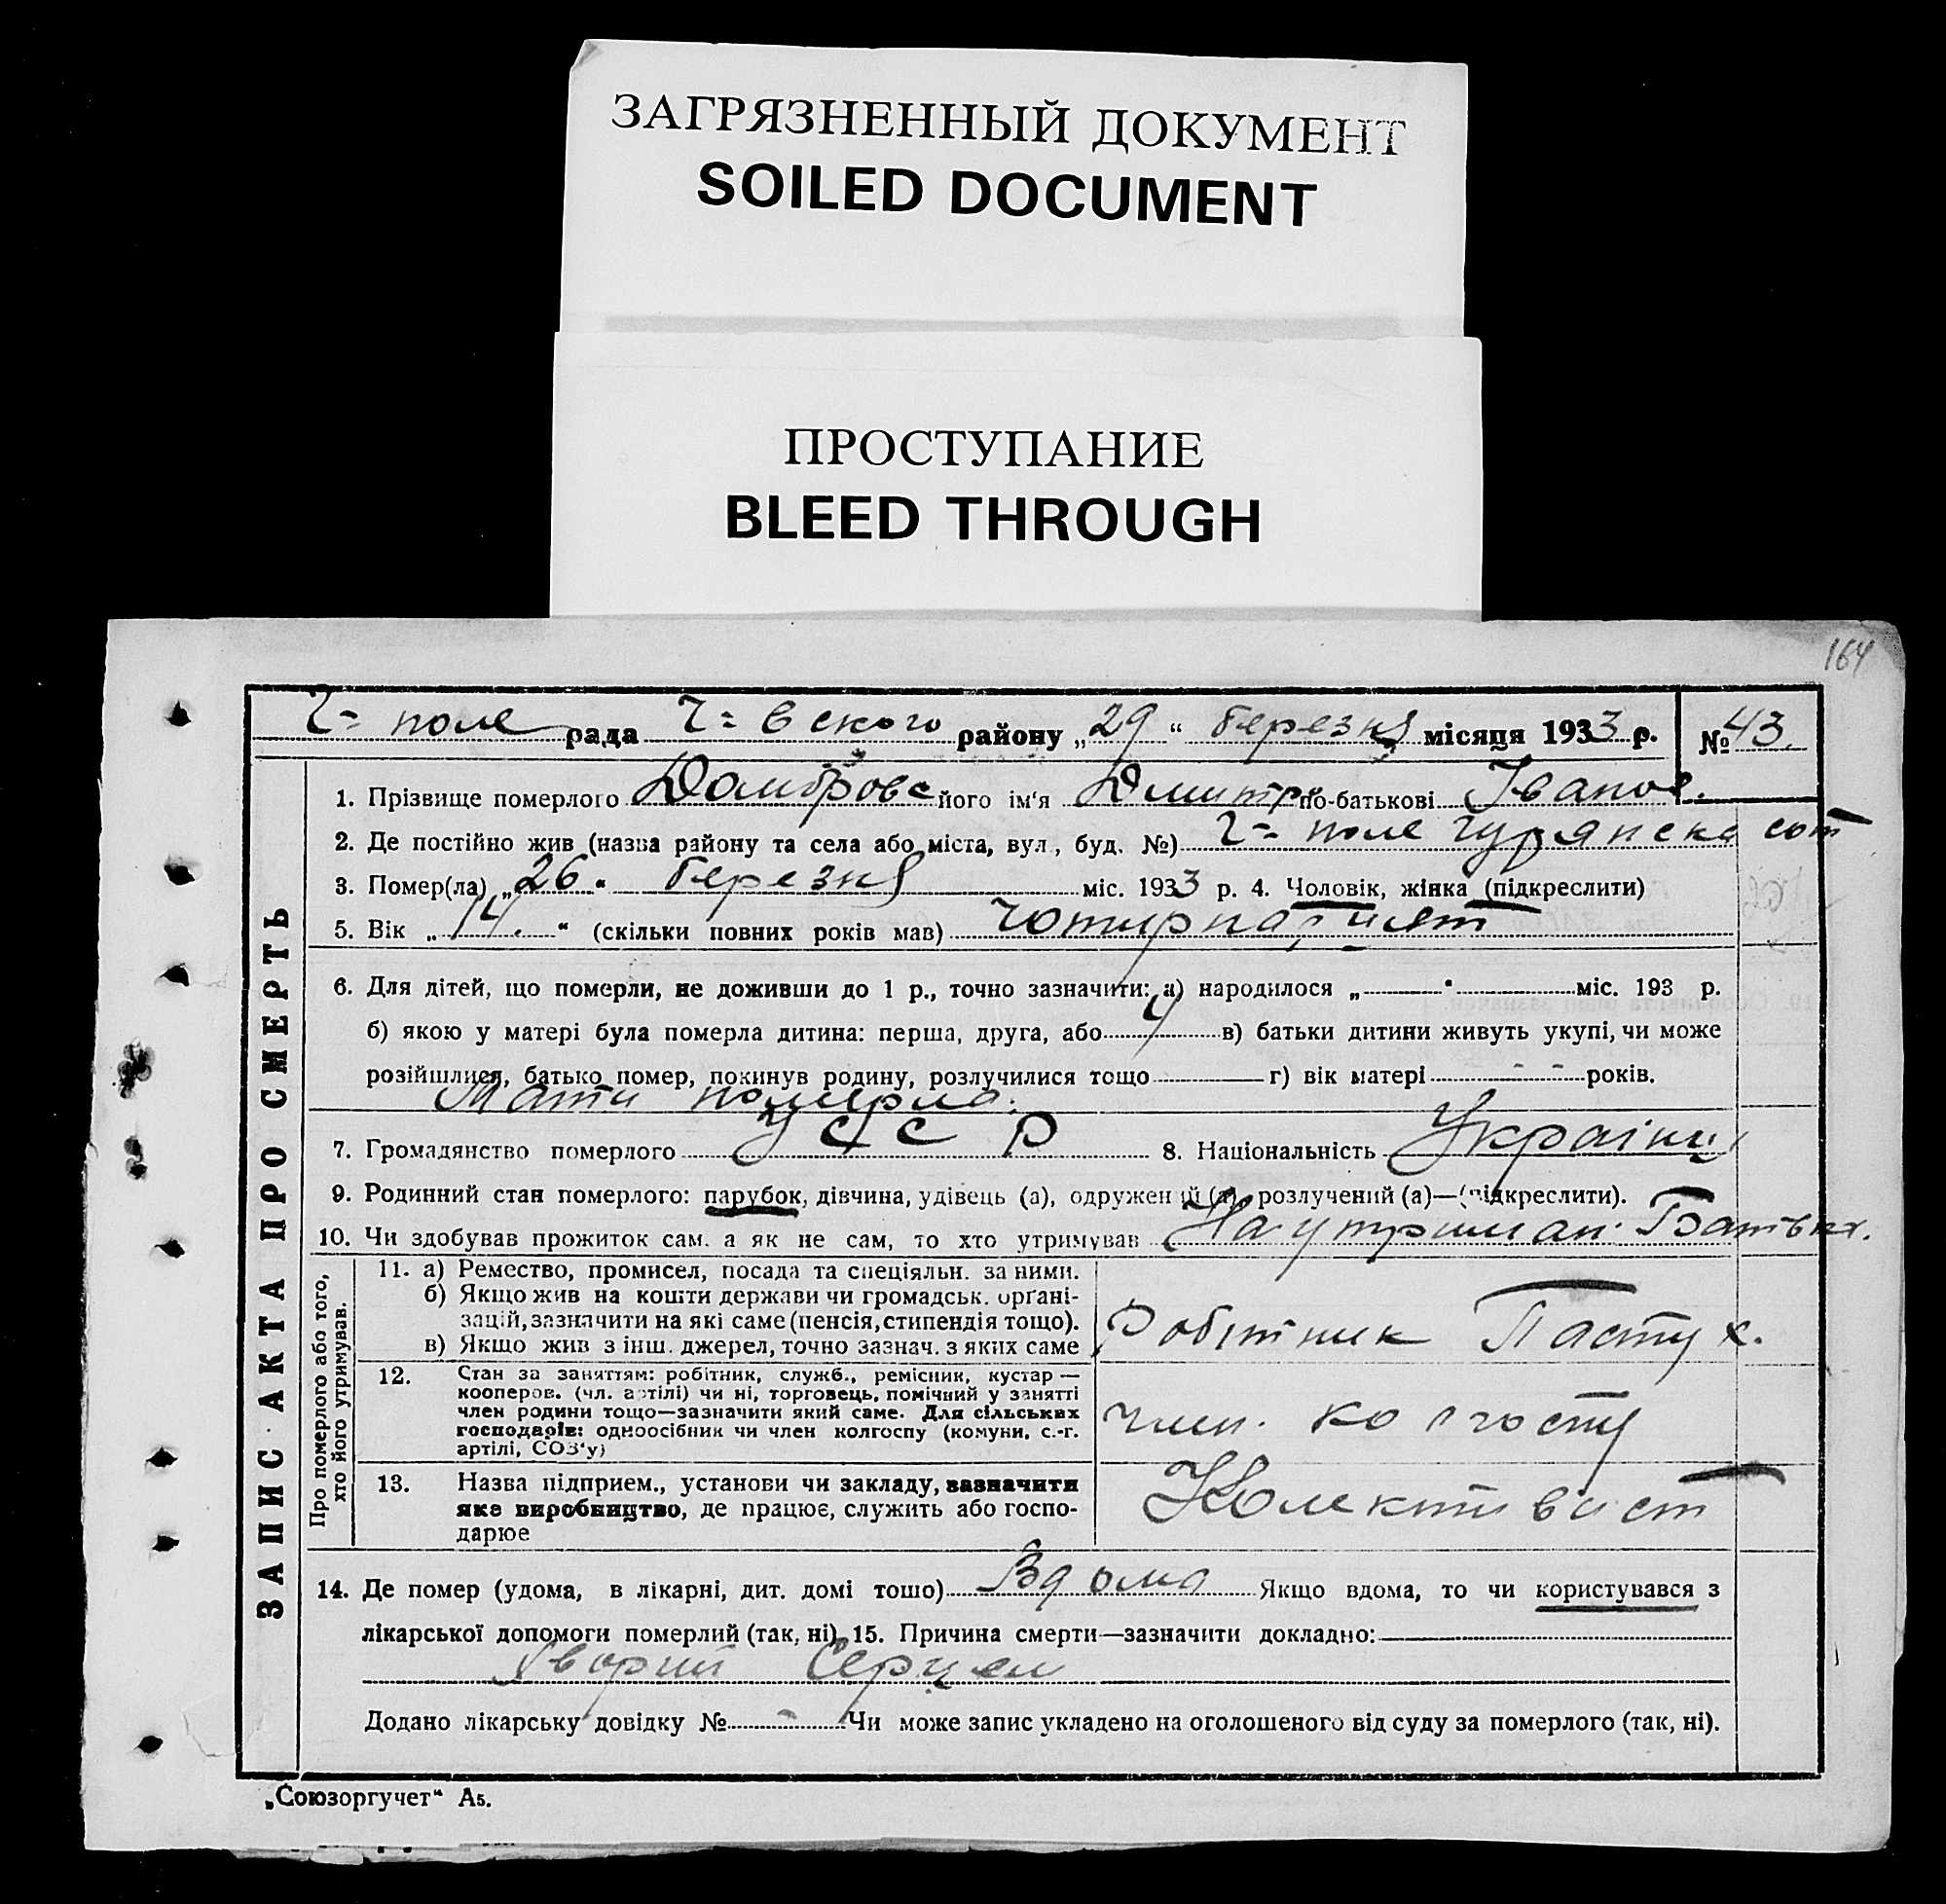 ЗАГРЯЗНЕННЫЙ ДОКУМЕНТ
SOILED DOCUMENT
ПРОСТУПАНИЕ
BLEED THROUGH
164
Г= поле рада Г= вского району „29“ березня місяця 1933 р. № 43.
ЗАПИС АКТА ПРО СМЕРТЬ
1. Прізвище померлого Домбровс його ім'я Дмитр по-батькові Іванов.
2. Де постійно жив (назва району та села або міста, вул., буд. №) Г= поле
3. Помер(ла) „26“ березня міс. 1933 р. 4. Чоловік, жінка (підкреслити)
5. Вік „14.“ (скільки повних років мав) Чотирнацият
6. Для дітей, що померли, не доживши до 1 р., точно зазначити: а) народилося „—“ — міс. 193 р.
б) якою у матері була померла дитина: перша, друга, або 4 в) батьки дитини живуть укупі, чи може
розійшлися, батько помер, покинув родину, розлучилися тощо — г) вік матері - - років.
Мати померла.
7. Громадянство померлого УССР 8. Національність Украінец
9. Родинний стан померлого: парубок, дівчина, удівець (а), одружений (а), розлучений (а)—(підкреслити).
10. Чи здобував прожиток сам. а як не сам, то хто утримував На утриман. Батька.
Про померлого або того, хто його утримував.
11. а) Ремество, промисел, посада та спеціяльн. за ними.
б) Якщо жив на кошти держави чи громадськ. орґані-
зацій, зазначити на які саме (пенсія, стипендія тощо).
в) Якщо жив з інш. джерел, точно зазнач. з яких саме
Робітник Пастух.
12. Стан за заняттям: робітник, служб., ремісник, кустар —
кооперов. (чл. артілі) чи ні, торговець, помічний у занятті
член родини тощо—зазначити який саме. Для сільських
господарів: одноосібник чи член колгоспу (комуни, с.-г.
артілі, СОЗ'у)
член. колгоспу
13. Назва підприєм., установи чи закладу, зазначити
яке виробництво, де працює, служить або госпо-
дарює
Колективист
14. Де помер (удома, в лікарні, дит. домі тошо) Вдома Якщо вдома, то чи користувався з
лікарської допомоги померлий (так, ні) 15. Причина смерти—зазначити докладно:
Хворий Серцем
Додано лікарську довідку № - Чи може запис укладено на оголошеного від суду за померлого (так, ні).
„Союзоргучет“ А5.